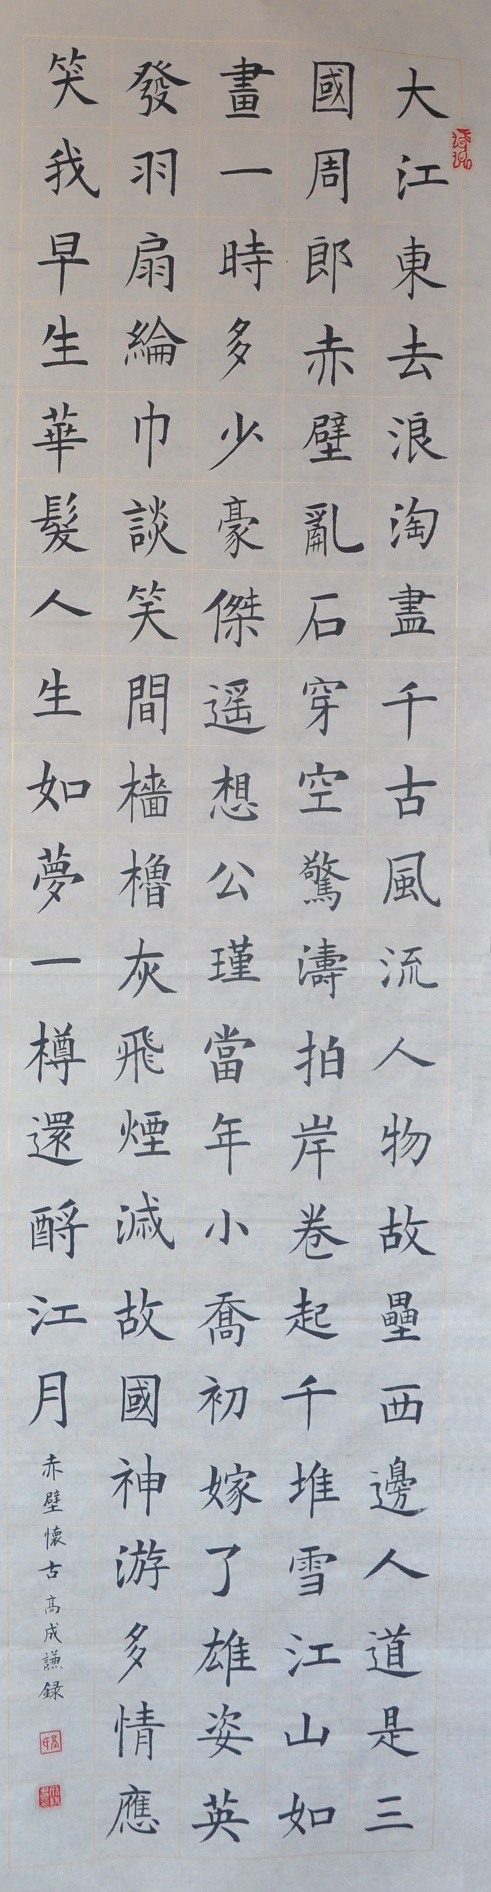 大江東去浪淘盡千古風流人物故壘西邊人道是三
國周郎赤壁亂石穿空驚濤拍岸卷起千堆雪江山如
畫一時多少豪傑遥想公瑾當年小喬初嫁了雄姿英
發羽扇綸巾談笑間檣櫓灰飛煙滅故國神游多情應
笑我早生華髮人生如夢一樽還酹江月
赤壁懷古高成謙録